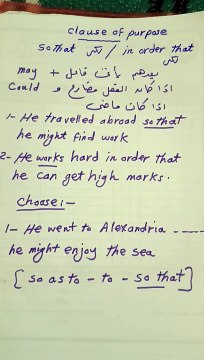 clause of purpose
so that لكى / in order that لكى
may + يتبعهم بأتى فاعل
could اذا كان الفعل مضارع و
اذا كان ماضى
1- He travelled abroad so that
he might find work
2- He works hard in order that
he can get high marks.
choose:-
1- He went to Alexandria -----
he might enjoy the sea
[ so as to - to - so that ]